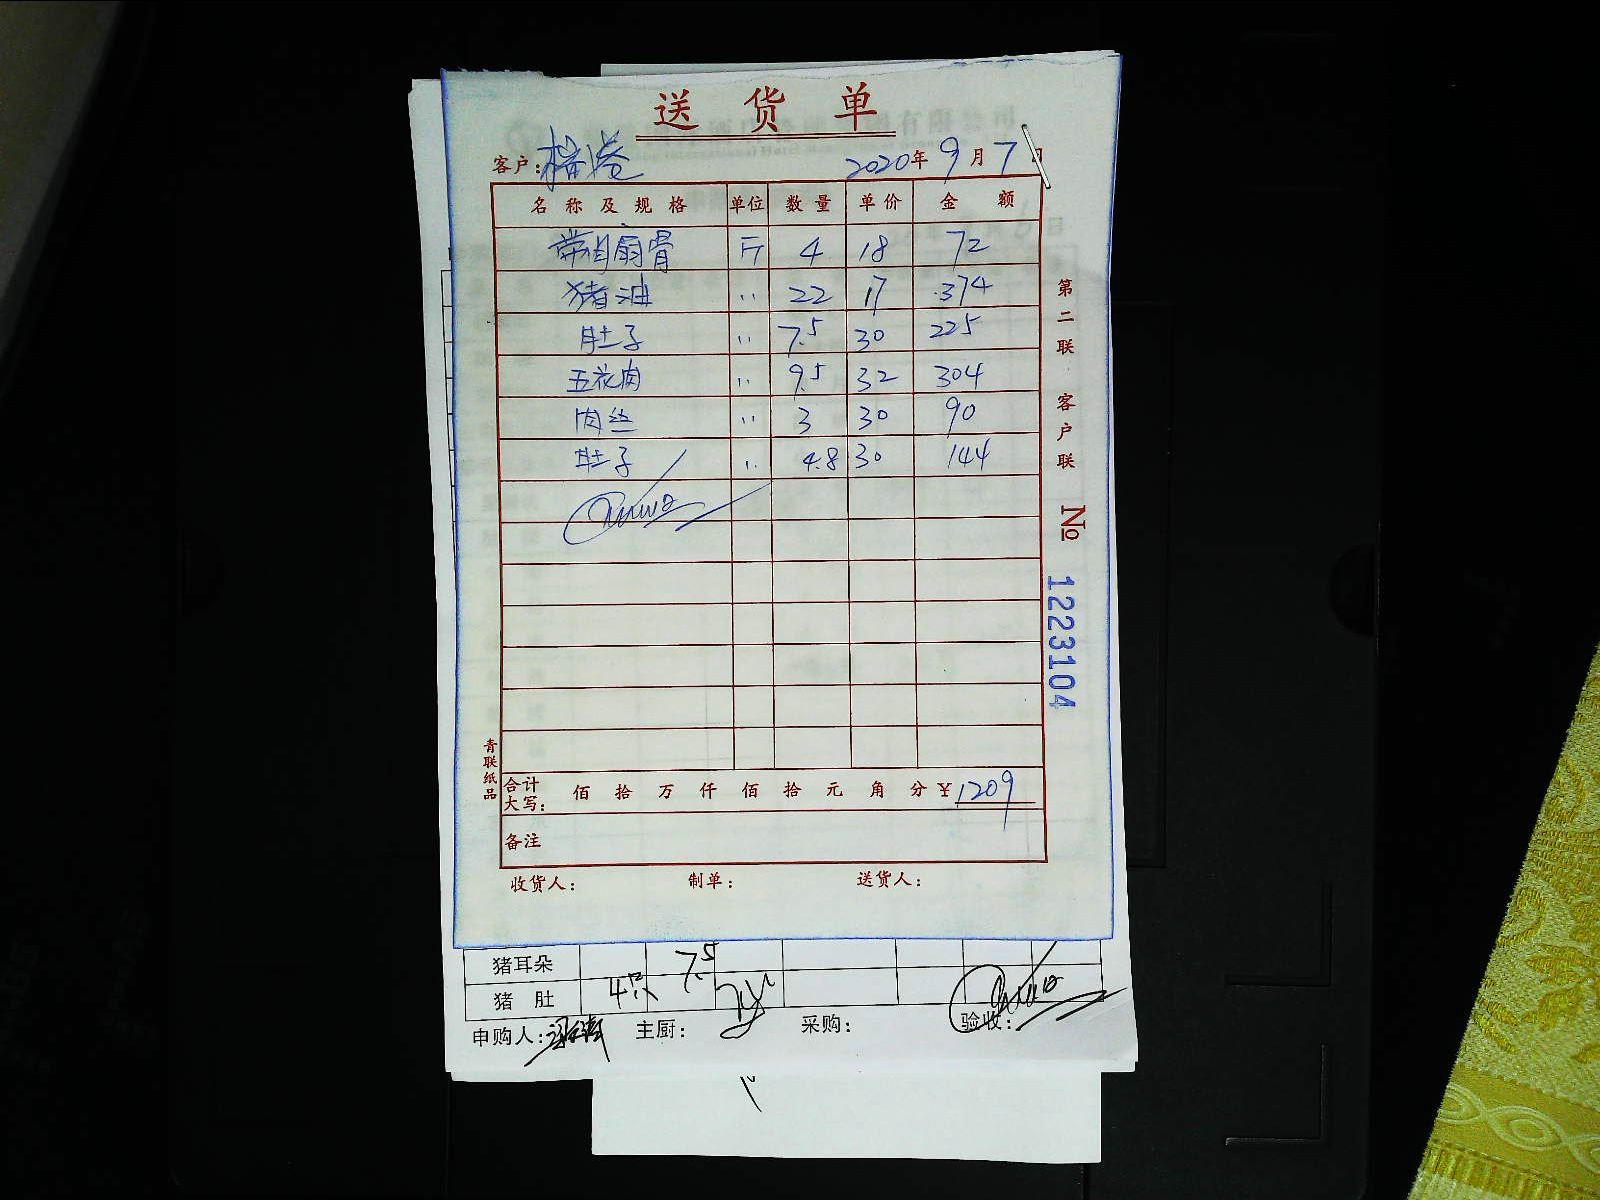 送货单
客户: 2020年9月7日
名称及规格 单位 数量 单价 金额
带肉扇骨 斤 4 18 72
猪油 〃 22 17 374
肚子 〃 7.5 30 225
五花肉 〃 9.5 32 304
肉丝 〃 3 30 90
肚子 〃 4.8 30 144
合计大写: 佰 拾 万 仟 佰 拾 元 角 分 ¥1209
备注
收货人: 制单: 送货人:
第二联 客户联
No 1223104
青联纸品
猪耳朵 7.5
猪肚 4只
申购人: 主厨: 采购: 验收: